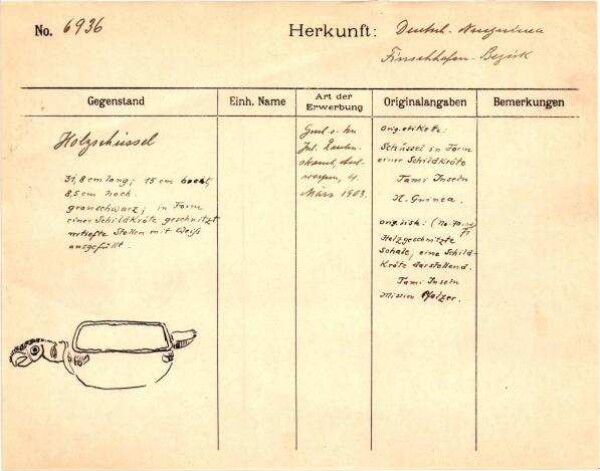 No. 6936
Herkunft: Deutsch-Neuguinea
Finschhafen-Bezirk
Gegenstand
Einh. Name
Art der Erwerbung
Originalangaben
Bemerkungen
Holzschüssel
31,8 cm lang; 15 cm
8,5 cm hoch.
grauschwarz; in Form
einer Schildkröte geschnitzt
vertiefte Stellen mit Weiß
ausgefüllt.
März 1903.
Orig. etikett:
Schüssel in Form
einer Schildkröte
Tami Inseln
N. Guinea.
Orig. Liste:
Holzgeschnitzte
Schale, eine Schild-
kröte darstellend.
Tami Inseln
Mission Pfalzer.